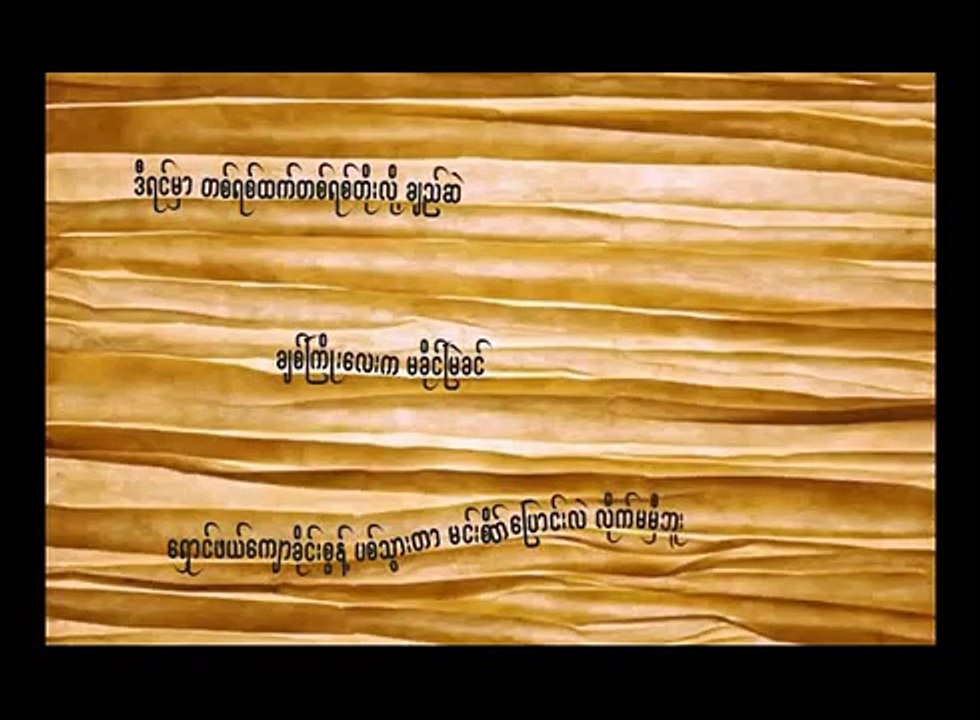 ဒီရင်မှာ တစ်ရစ်ထက်တစ်ရစ်တိုးလို့ ချည်ဆဲ
ချစ်ကြိုးလေးက မခိုင်မြဲခင်
ရှောင်ဖယ်ကျောခိုင်းစွန့် ပစ်သွားတာ မင်းစိတ်ပြောင်းလဲ လိုက်မမှီဘူး